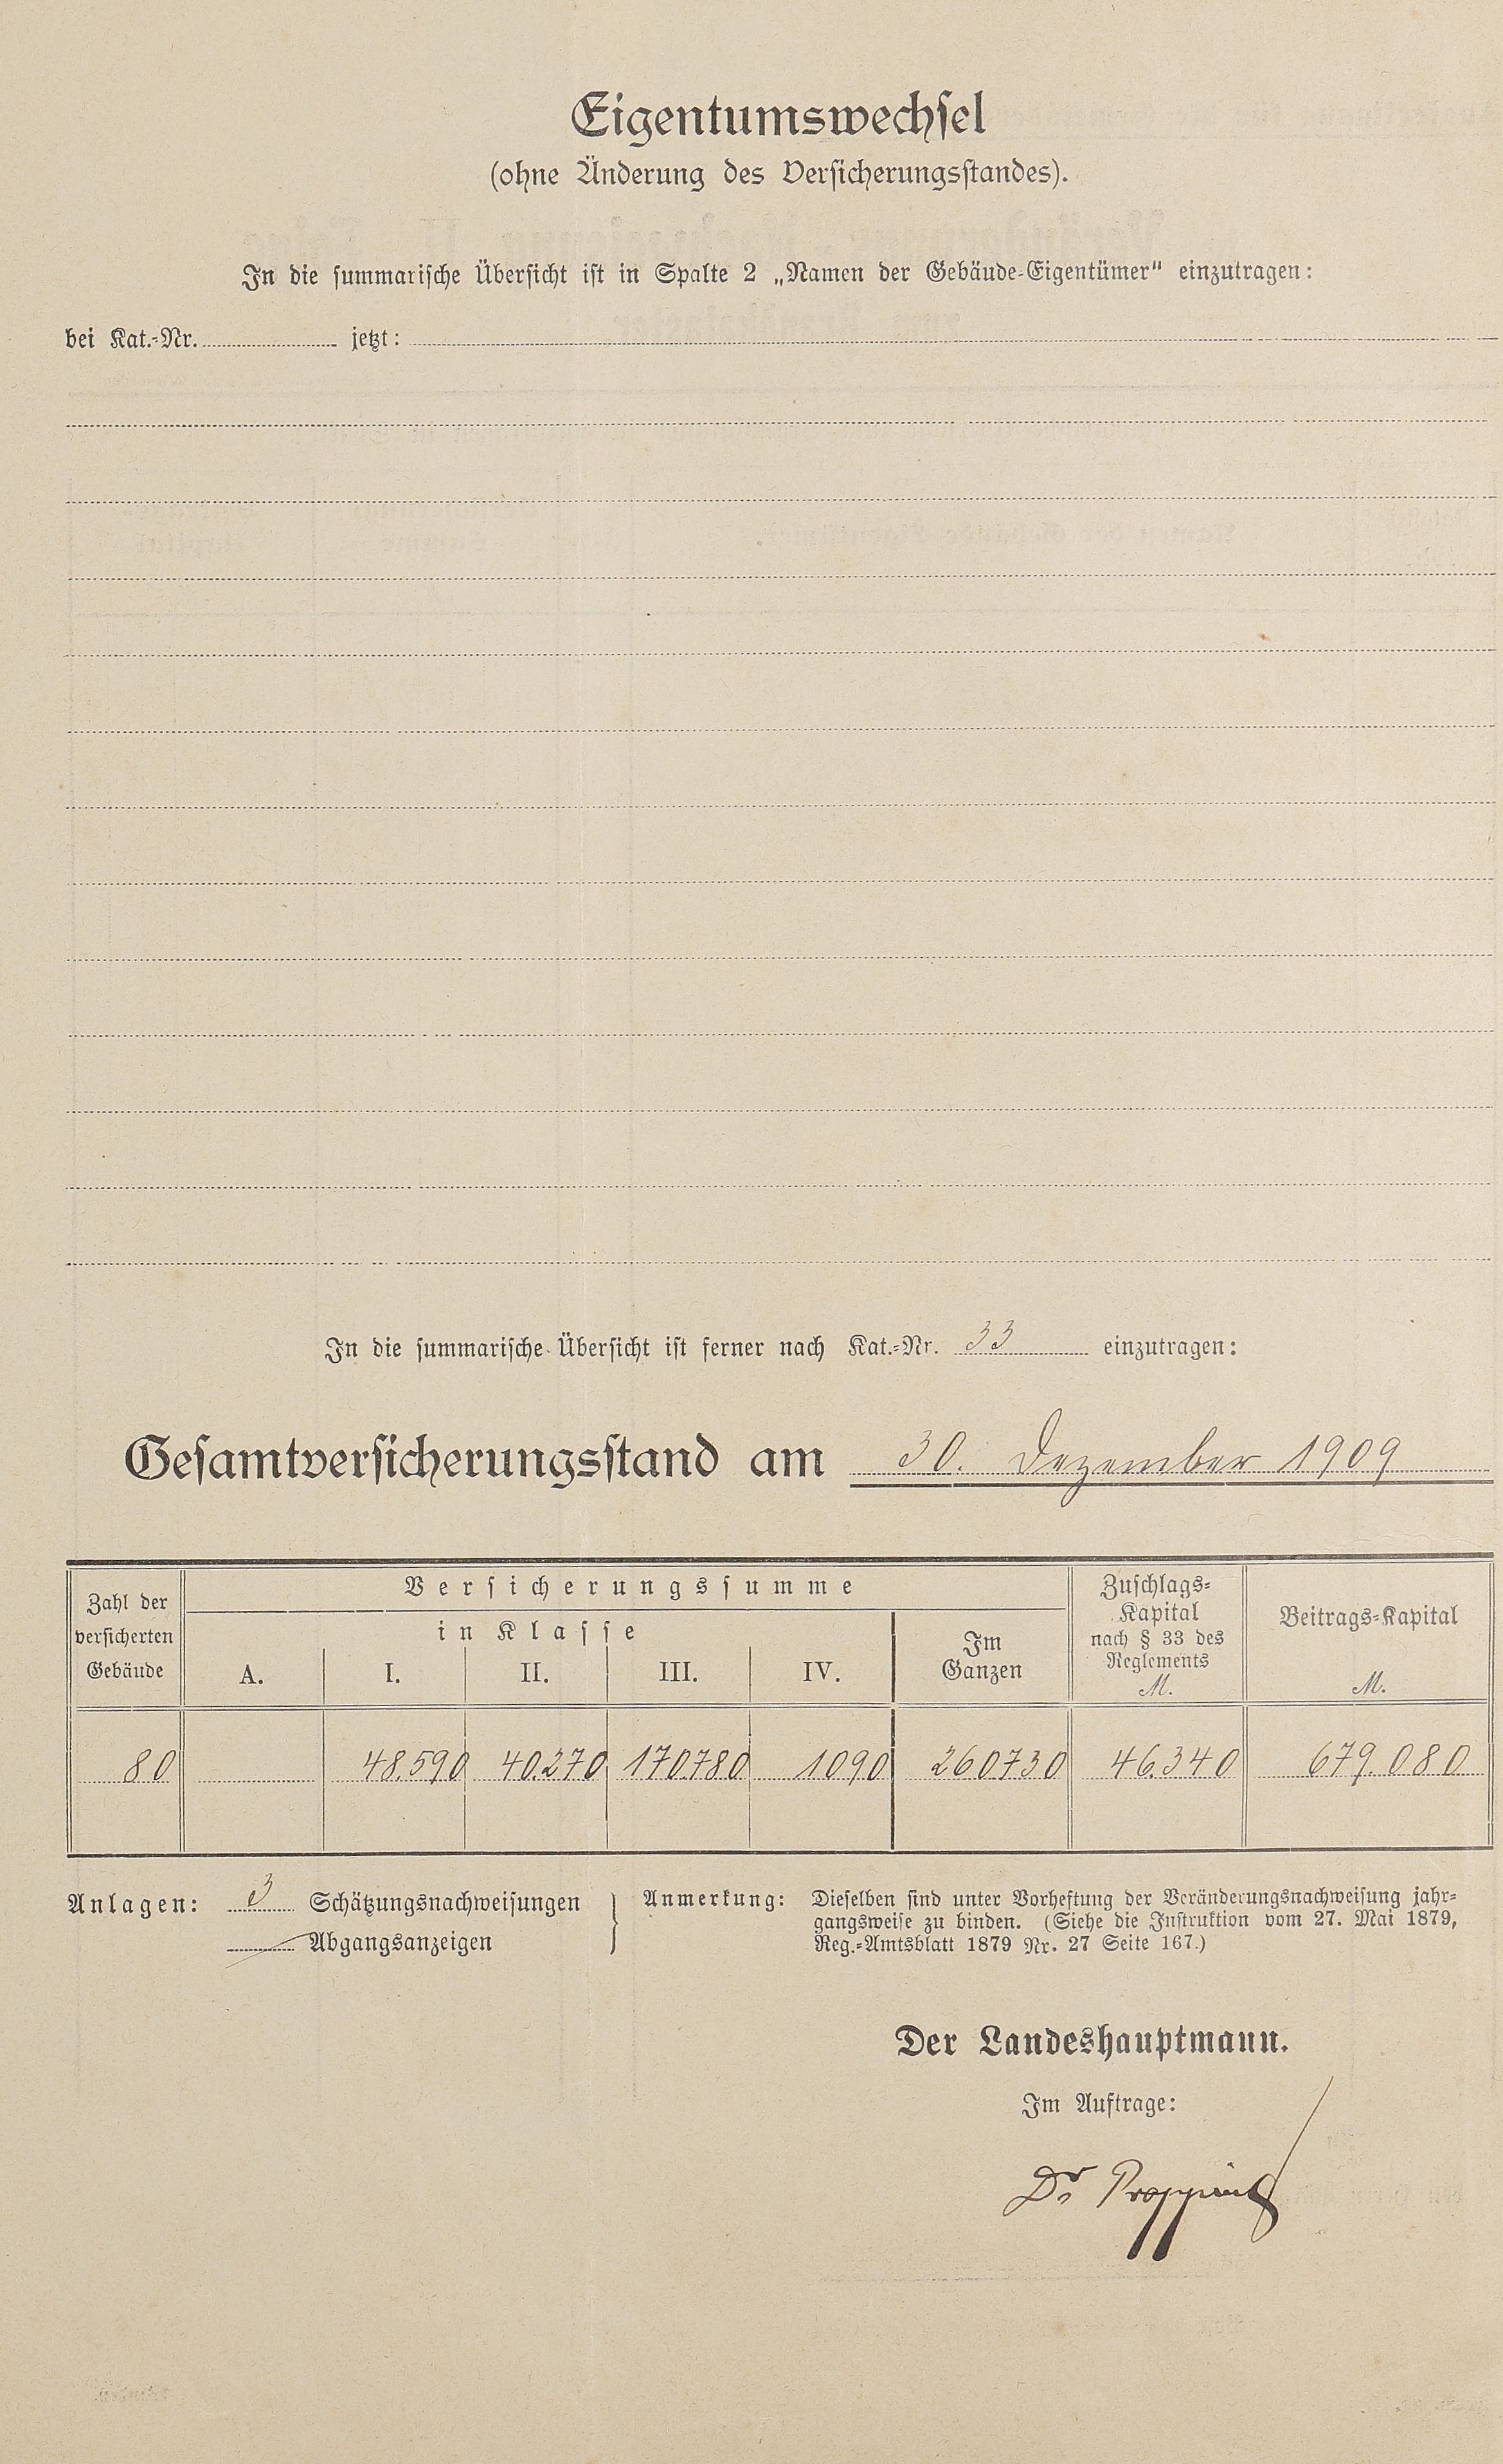 Eigentumswechsel
(ohne Änderung des Versicherungsstandes).
In die summarische Übersicht ist in Spalte 2 „Namen der Gebäude-Eigentümer“ einzutragen:
bei Kat.-Nr. jetzt:
In die summarische Übersicht ist ferner nach Kat.-Nr. 33 einzutragen:
Gesamtversicherungsstand am 30. Dezember 1909
Zahl der versicherten Gebäude
Versicherungssumme
in Klasse
A. I. II. III. IV.
Im Ganzen
Zuschlags-Kapital nach § 33 des Reglements M.
Beitrags-Kapital M.
80 48.590 40.270 170.780 1090 260730 46.340 679.080
Anlagen: 3 Schätzungsnachweisungen
Abgangsanzeigen
Anmerkung: Dieselben sind unter Vorheftung der Veränderungsnachweisung jahr-
gangsweise zu binden. (Siehe die Instruktion vom 27. Mai 1879,
Reg.-Amtsblatt 1879 Nr. 27 Seite 167.)
Der Landeshauptmann.
Im Auftrage:
Dr. Propping